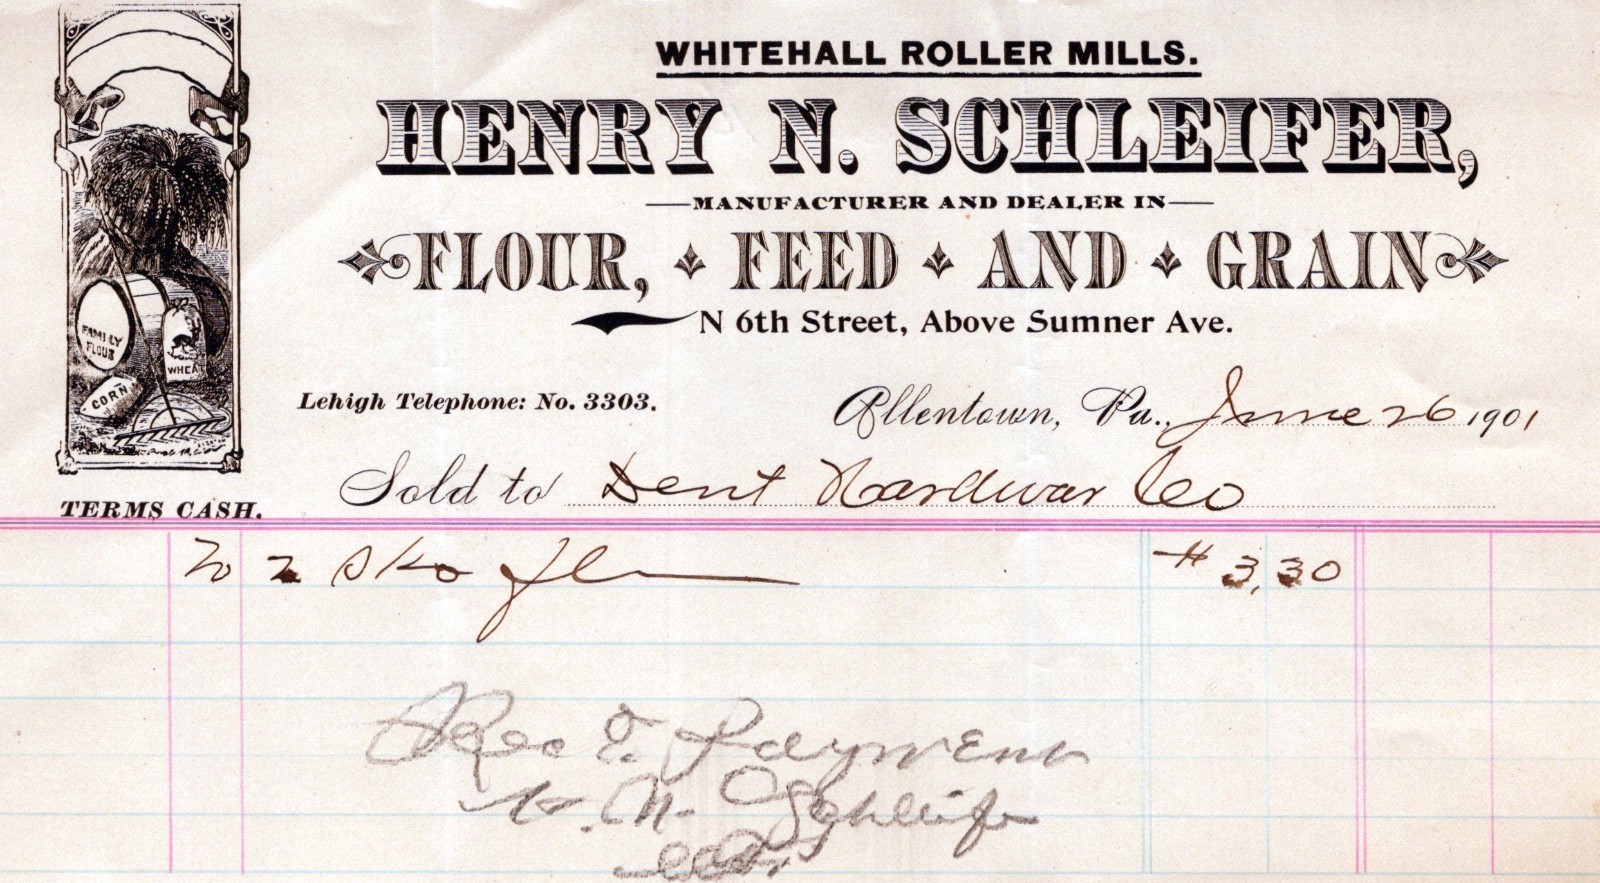 WHITEHALL ROLLER MILLS.
HENRY N. SCHLEIFER,
MANUFACTURER AND DEALER IN
FLOUR, FEED AND GRAIN
N 6th Street, Above Sumner Ave.
FAMILY
FLOUR
WHEAT
CORN
Lehigh Telephone: No. 3303.
Allentown, Pa., June 26 1901
TERMS CASH.
Sold to Dent Hardwar Co
To 2 Sks fl
# 3,30
Rec Payment
H. N. Schleifer